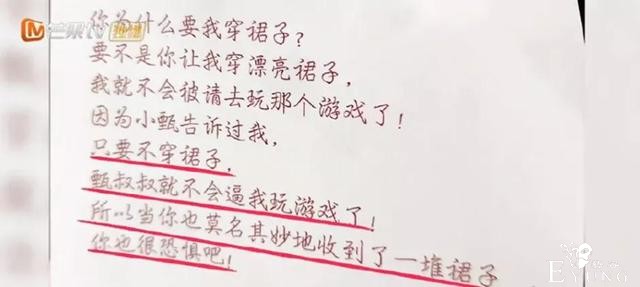 芒果TV 独播
你为什么要我穿裙子?
要不是你让我穿漂亮裙子,
我就不会被请去玩那个游戏了!
因为小甄告诉过我,
只要不穿裙子,
甄叔叔就不会逼我玩游戏了!
所以当你也莫名其妙地收到了一堆裙子
你也很恐惧吧!